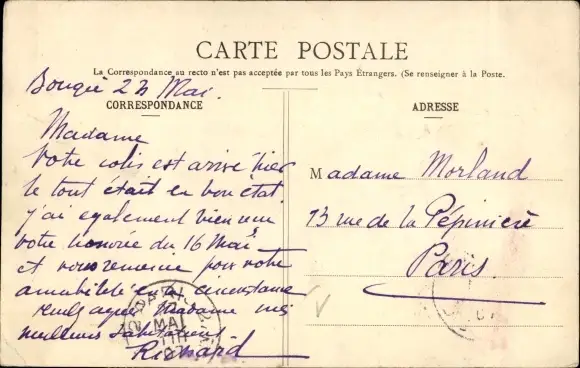 CARTE POSTALE
La Correspondance au recto n'est pas acceptée par tous les Pays Étrangers. (Se renseigner à la Poste.
Bougie 22 Mai.
CORRESPONDANCE
Madame
Votre colis est arivé hier
le tout était en bon état
j'ai egalement bien reçu
votre honorée du 16 Mai
et vous remercie pour votre
amabilité en la circonstance
Madame mes
meilleures salutations
Richard
ADRESSE
Madame Morland
13 rue de la Pépinière
Paris
PARIS
MAI